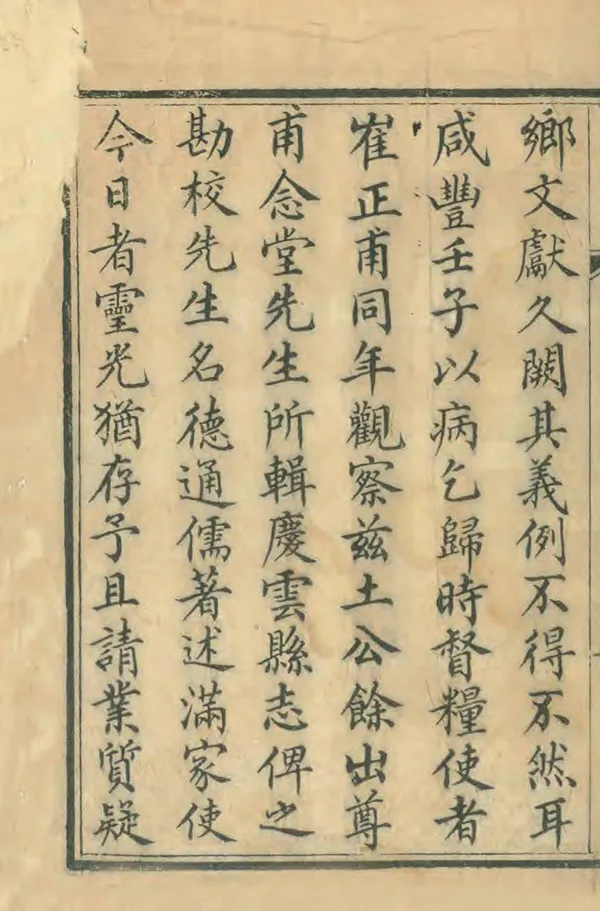 鄉文獻久闕其義例不得不然耳
咸豐壬子以病乞歸時督糧使者
崔正甫同年觀察茲土公餘出尊
甫念堂先生所輯慶雲縣志俾之
勘校先生名德通儒著述滿家使
今日者靈光猶存予且請業質疑